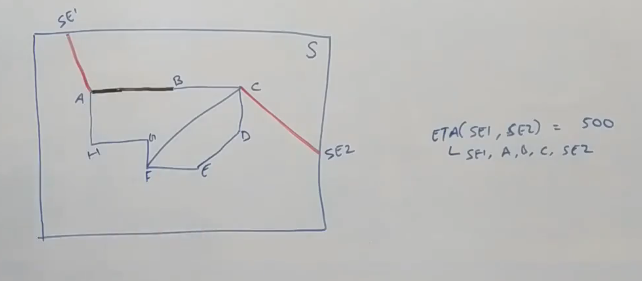 SE1
S
A
B
C
H
G
D
F
E
SE2
ETA(SE1, SE2) = 500
SE1, A, B, C, SE2